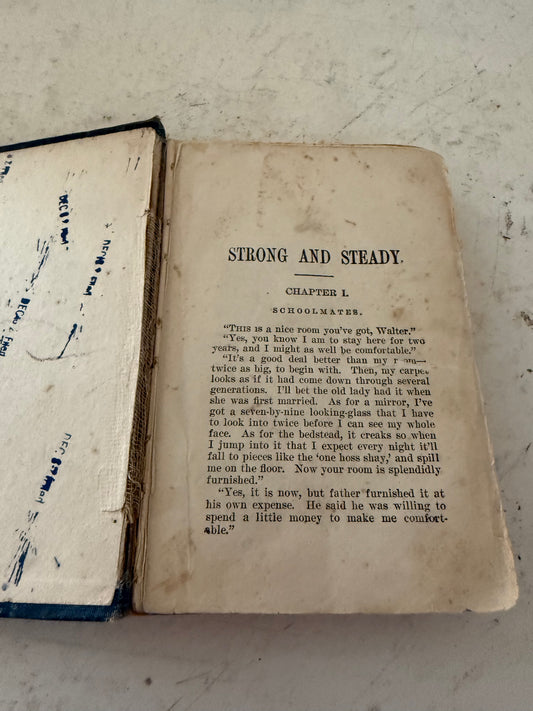 DEC
DEC
DEC
DEC
STRONG AND STEADY.
CHAPTER I.
SCHOOLMATES.
"THIS is a nice room you've got, Walter."
"Yes, you know I am to stay here for two
years, and I might as well be comfortable."
"It's a good deal better than my room—
twice as big, to begin with. Then, my carpet
looks as if it had come down through several
generations. I'll bet the old lady had it when
she was first married. As for a mirror, I've
got a seven-by-nine looking-glass that I have
to look into twice before I can see my whole
face. As for the bedstead, it creaks so when
I jump into it that I expect every night it'll
fall to pieces like the 'one hoss shay,' and spill
me on the floor. Now your room is splendidly
furnished."
"Yes, it is now, but father furnished it at
his own expense. He said he was willing to
spend a little money to make me comfort-
able."